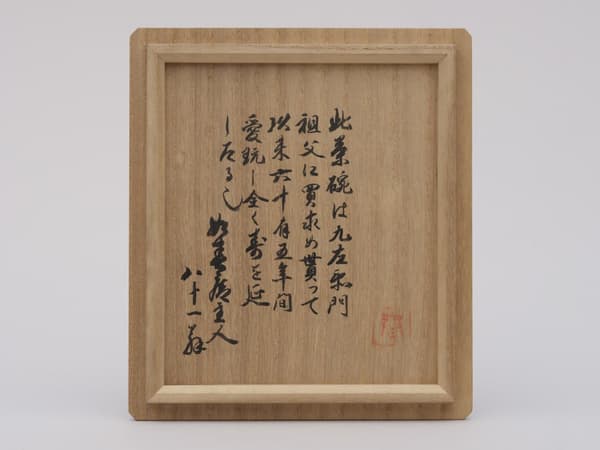 此茶碗は九左衛門
祖父に買求め貰って
以来六十有五年間
愛玩し全く寿を延
したるも
主人
八十一翁